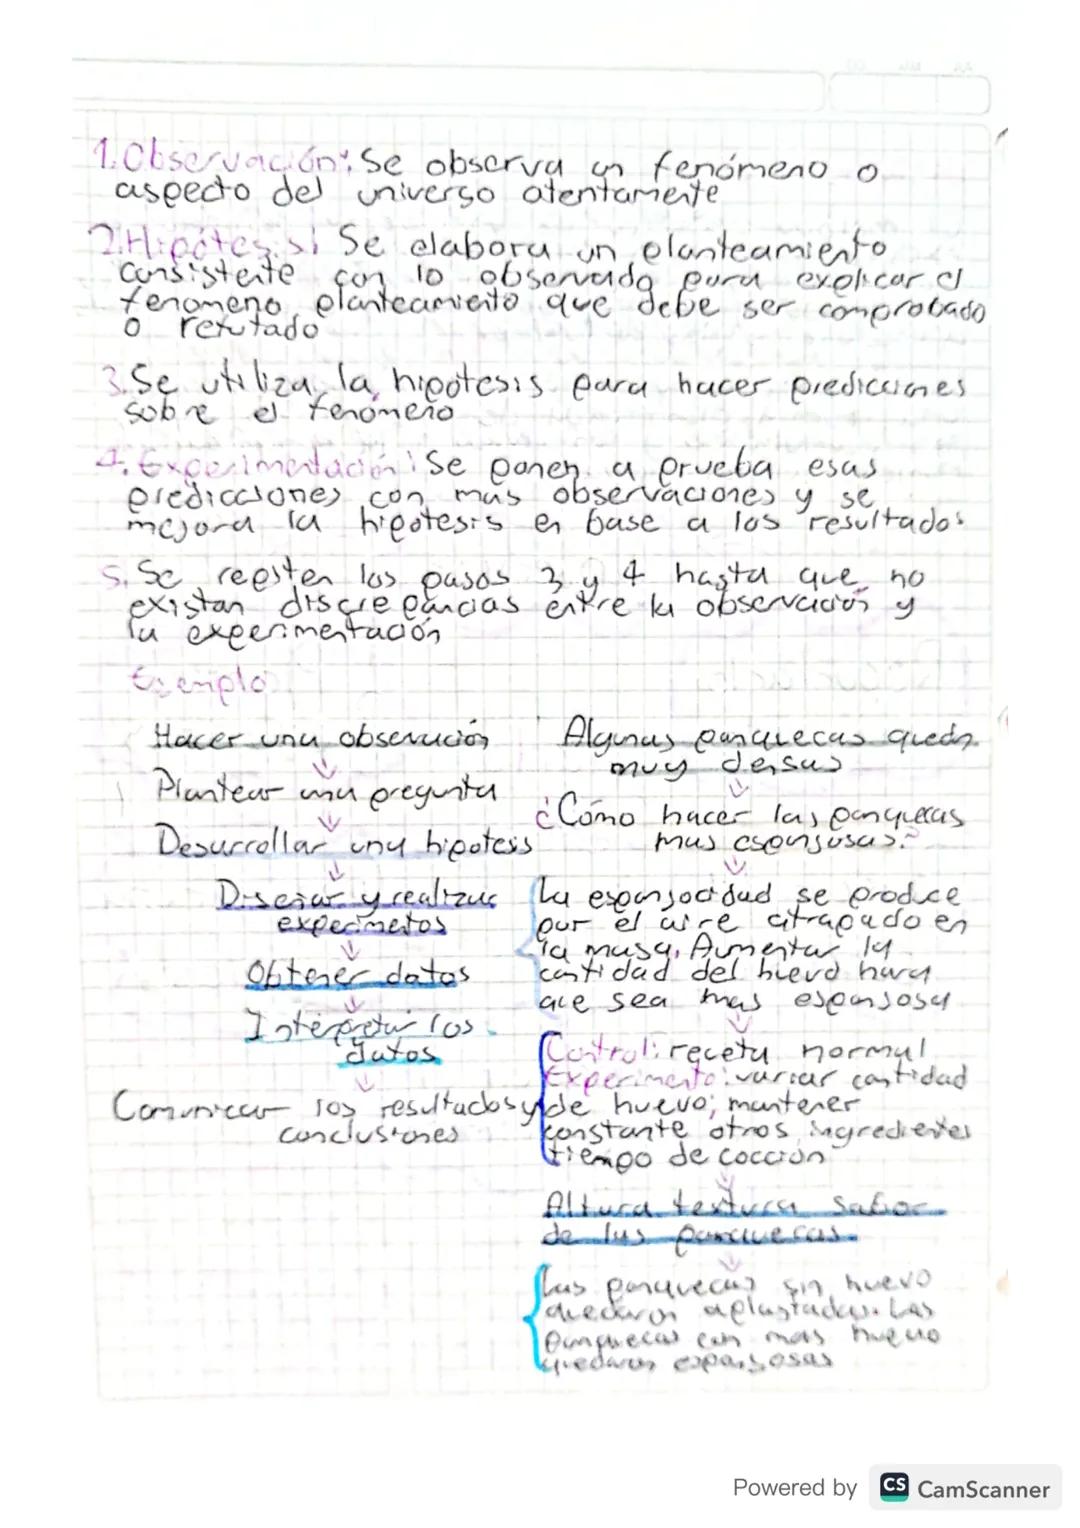 1. Observación: Se observa un fenómeno o
aspecto del universo atentamente
2. Hipótesis: Se elabora un planteamiento
consistente con lo observado para explicar el
fenomeno, planteamiento que debe ser comprobado
o refutado
3. Se utiliza la hipotesis para hacer predicciones
sobre el fenómeno
4. Experimentación: Se ponen a prueba esas
predicciones con mas observaciones y se
mejora la hipótesis en base a los resultados
5. Se repiten los pasos 3 y 4 hasta que no
existan discrepancias entre la observación y
la experimentación
Ejemplo
Hacer una observación
↓
Plantear una pregunta
↓
Desarrollar una hipotesis
↓
Diseñar y realizar
experimetos
↓
Obtener datos
↓
Interpretar los
datos
↓
Comunicar los resultados y
conclusiones
Algunas panquecas quedan
muy densas
↓
¿Cómo hacer las panquecas
mas esponjosas?
↓
La esponjocidad se produce
por el aire atrapado en
la masa. Aumentar la
cantidad del huevo hara
que sea mas esponjosa
↓
Control: receta normal
Experimento: variar cantidad
de huevo; mantener
constante otros ingredientes
tiempo de cocción
↓
Altura textura sabor
de las panquecas.
↓
Las panquecas sin huevo
quedaron aplastadas. Las
panquecas con mas huevo
quedaron esponjosas
Powered by CS CamScanner